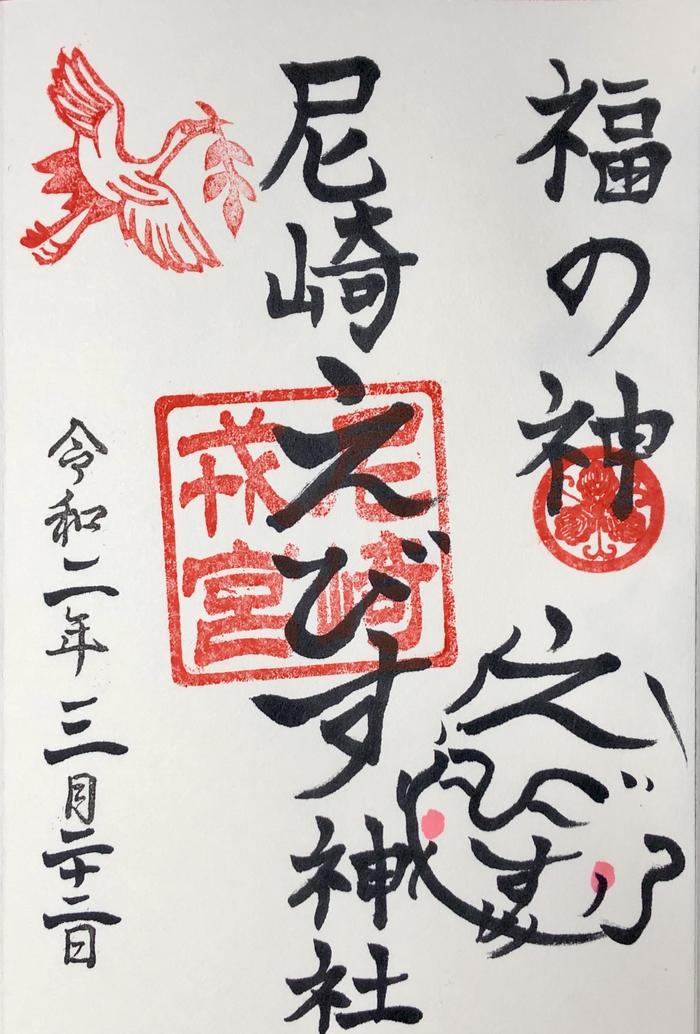 福の神
えびす
尼崎えびす神社
尼崎
戎宮
令和二年三月二十二日